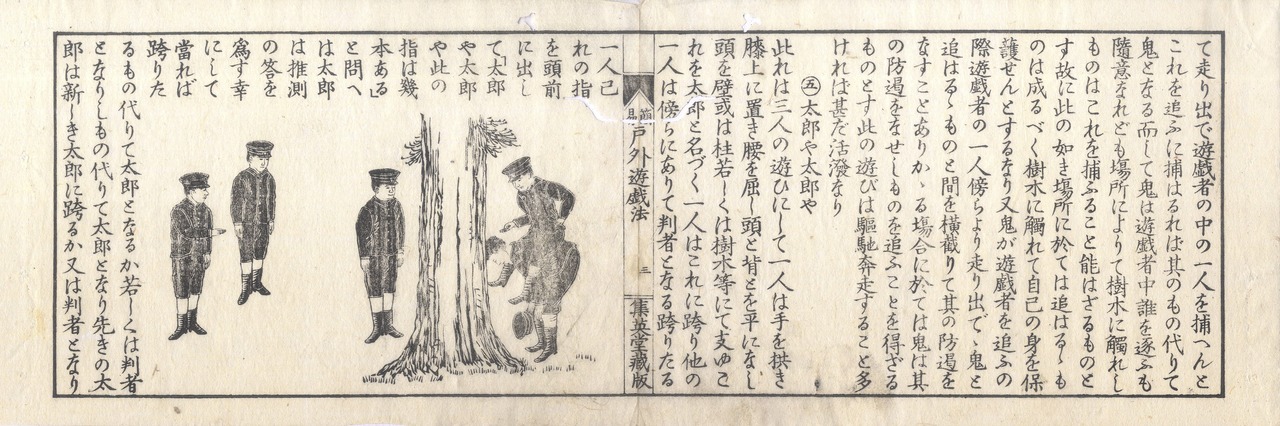 て走り出で遊戯者の中の一人を捕へんと
これを追ふに捕はるれば其のもの代りて
鬼となる而して鬼は遊戯者中誰を逐ふも
隨意なれども場所によりて樹木に觸れし
ものはこれを捕ふること能はざるものと
す故に此の如き塲所に於ては追はるゝも
のは成るべく樹木に觸れて自己の身を保
護せんとするなり又鬼が遊戯者を追ふの
際遊戯者の一人傍らより走り出でゝ鬼と
追はるゝものと間を横截りて其の防遏を
なすことありかゝる塲合に於ては鬼は其
の防遏をなせしものを追ふことを得ざる
ものとす此の遊びは驅馳奔走すること多
ければ甚だ活潑なり
㊄太郎や太郎や
此れは三人の遊ひにして一人は手を拱き
膝上に置き腰を屈し頭と背とを平になし
頭を壁或は柱若しくは樹木等にて支ゆこ
れを太郎と名づく一人はこれに跨り他の
一人は傍らにありて判者となる跨りたる
簡易戸外遊戯法
三
集英堂藏版
一人己
れの指
を頭前
に出し
て「太郎
や太郎
や此の
指は幾
本ある」
と問へ
は太郎
は推測
の答を
爲す幸
にして
當れば
跨りた
るもの代りて太郎となるか若しくは判者
となりしもの代りて太郎となり先きの太
郎は新しき太郎に跨るか又は判者となり